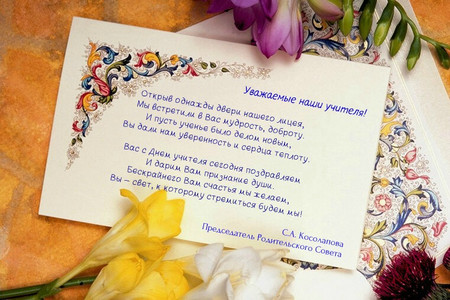 Уважаемые наши учителя!
Открыв однажды двери нашего лицея,
Мы встретили в Вас мудрость, доброту.
И пусть ученье было делом новым,
Вы дали нам уверенность и сердца теплоту.
Вас с Днем учителя сегодня поздравляем
И дарим Вам признание души.
Бескрайнего Вам счастья мы желаем,
Вы – свет, к которому стремиться будем мы!
С.А. Косолапова
Председатель Родительского Совета